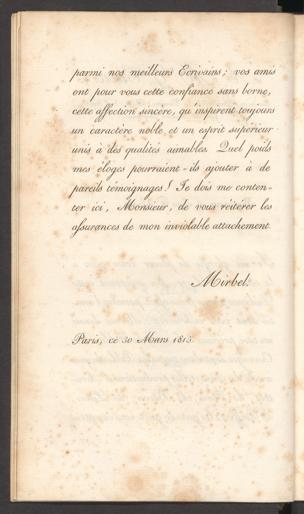 parmi nos meilleurs Ecrivains; vos amis
ont pour vous cette confiance sans borne,
cette affection sincère, qu'inspirent toujours
un caractère noble et un esprit supérieur
unis à des qualités aimables. Quel poids
mes éloges pourraient-ils ajouter à de
pareils témoignages! Je dois me conten-
ter ici, Monsieur, de vous réitérer les
assurances de mon inviolable attachement
Mirbel.
Paris, ce 30 Mars 1815.